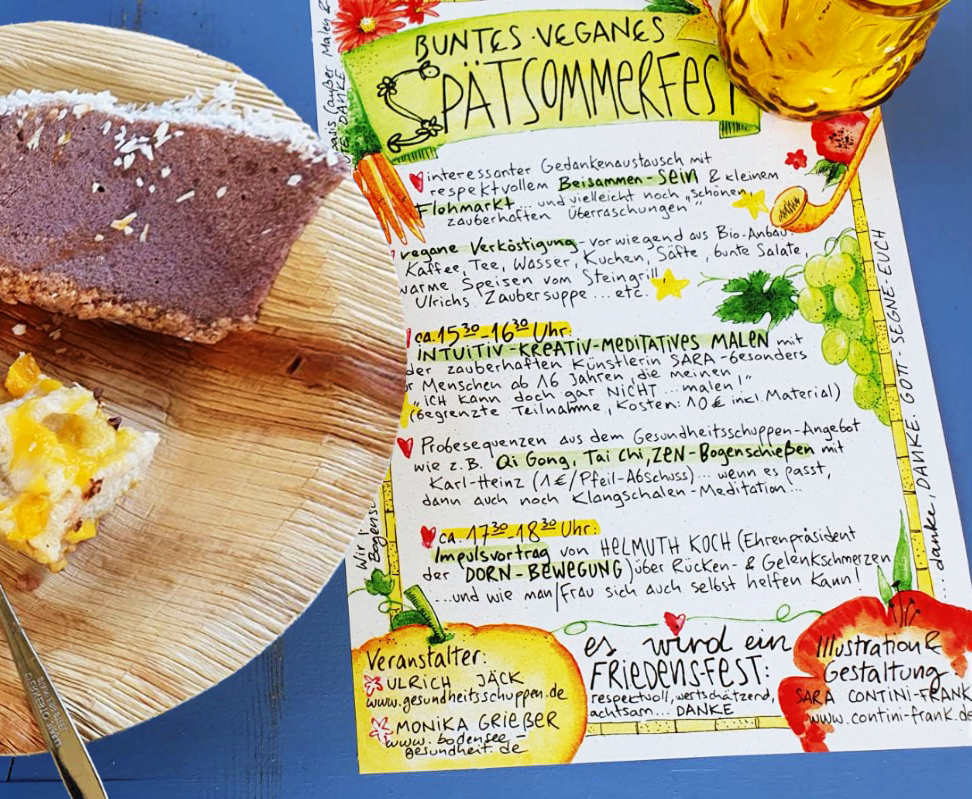 BUNTES VEGANES
SPÄTSOMMERFEST
interessanter Gedankenaustausch mit
respektvollem Beisammen-sein & kleinem
Flohmarkt... und vielleicht noch „schönen,
zauberhaften Überraschungen"
vegane Verköstigung - vorwiegend aus Bio-Anbau:
Kaffee, Tee, Wasser, Kuchen, Säfte, bunte Salate,
warme Speisen vom Steingrill
Ulrichs Zaubersuppe ... etc.
ca. 15³⁰-16³⁰ Uhr:
INTUITIV-KREATIV-MEDITATIVES MALEN mit
der zauberhaften Künstlerin SARA - besonders
Menschen ab 16 Jahren, die meinen
„ICH kann doch gar NICHT ... malen!"
(begrenzte Teilnahme, Kosten: 10€ inkl. Material)
Probesequenzen aus dem Gesundheitsschuppen-Angebot
wie z.B. Qi Gong, Tai Chi, ZEN-Bogenschießen mit
Karl-Heinz (1€/Pfeil-Abschuss)... wenn es passt,
dann auch noch Klangschalen-Meditation...
ca. 17³⁰-18³⁰ Uhr:
Impulsvortrag von HELMUTH KOCH (Ehrenpräsident
der DORN-BEWEGUNG) über Rücken- & Gelenkschmerzen
...und wie man/Frau sich auch selbst helfen kann!
es wird ein
FRIEDENSFEST:
respektvoll, wertschätzend,
achtsam... DANKE
Veranstalter:
ULRICH JÄCK
www.gesundheitsschuppen.de
MONIKA GRIEßER
www.bodensee-
gesundheit.de
Illustration &
Gestaltung
SARA CONTINI-FRANK
www.contini-frank.de
... danke, DANKE. GOTT-SEGNE-EUCH
außer Malen &
DANKE
Wir
Bogensc